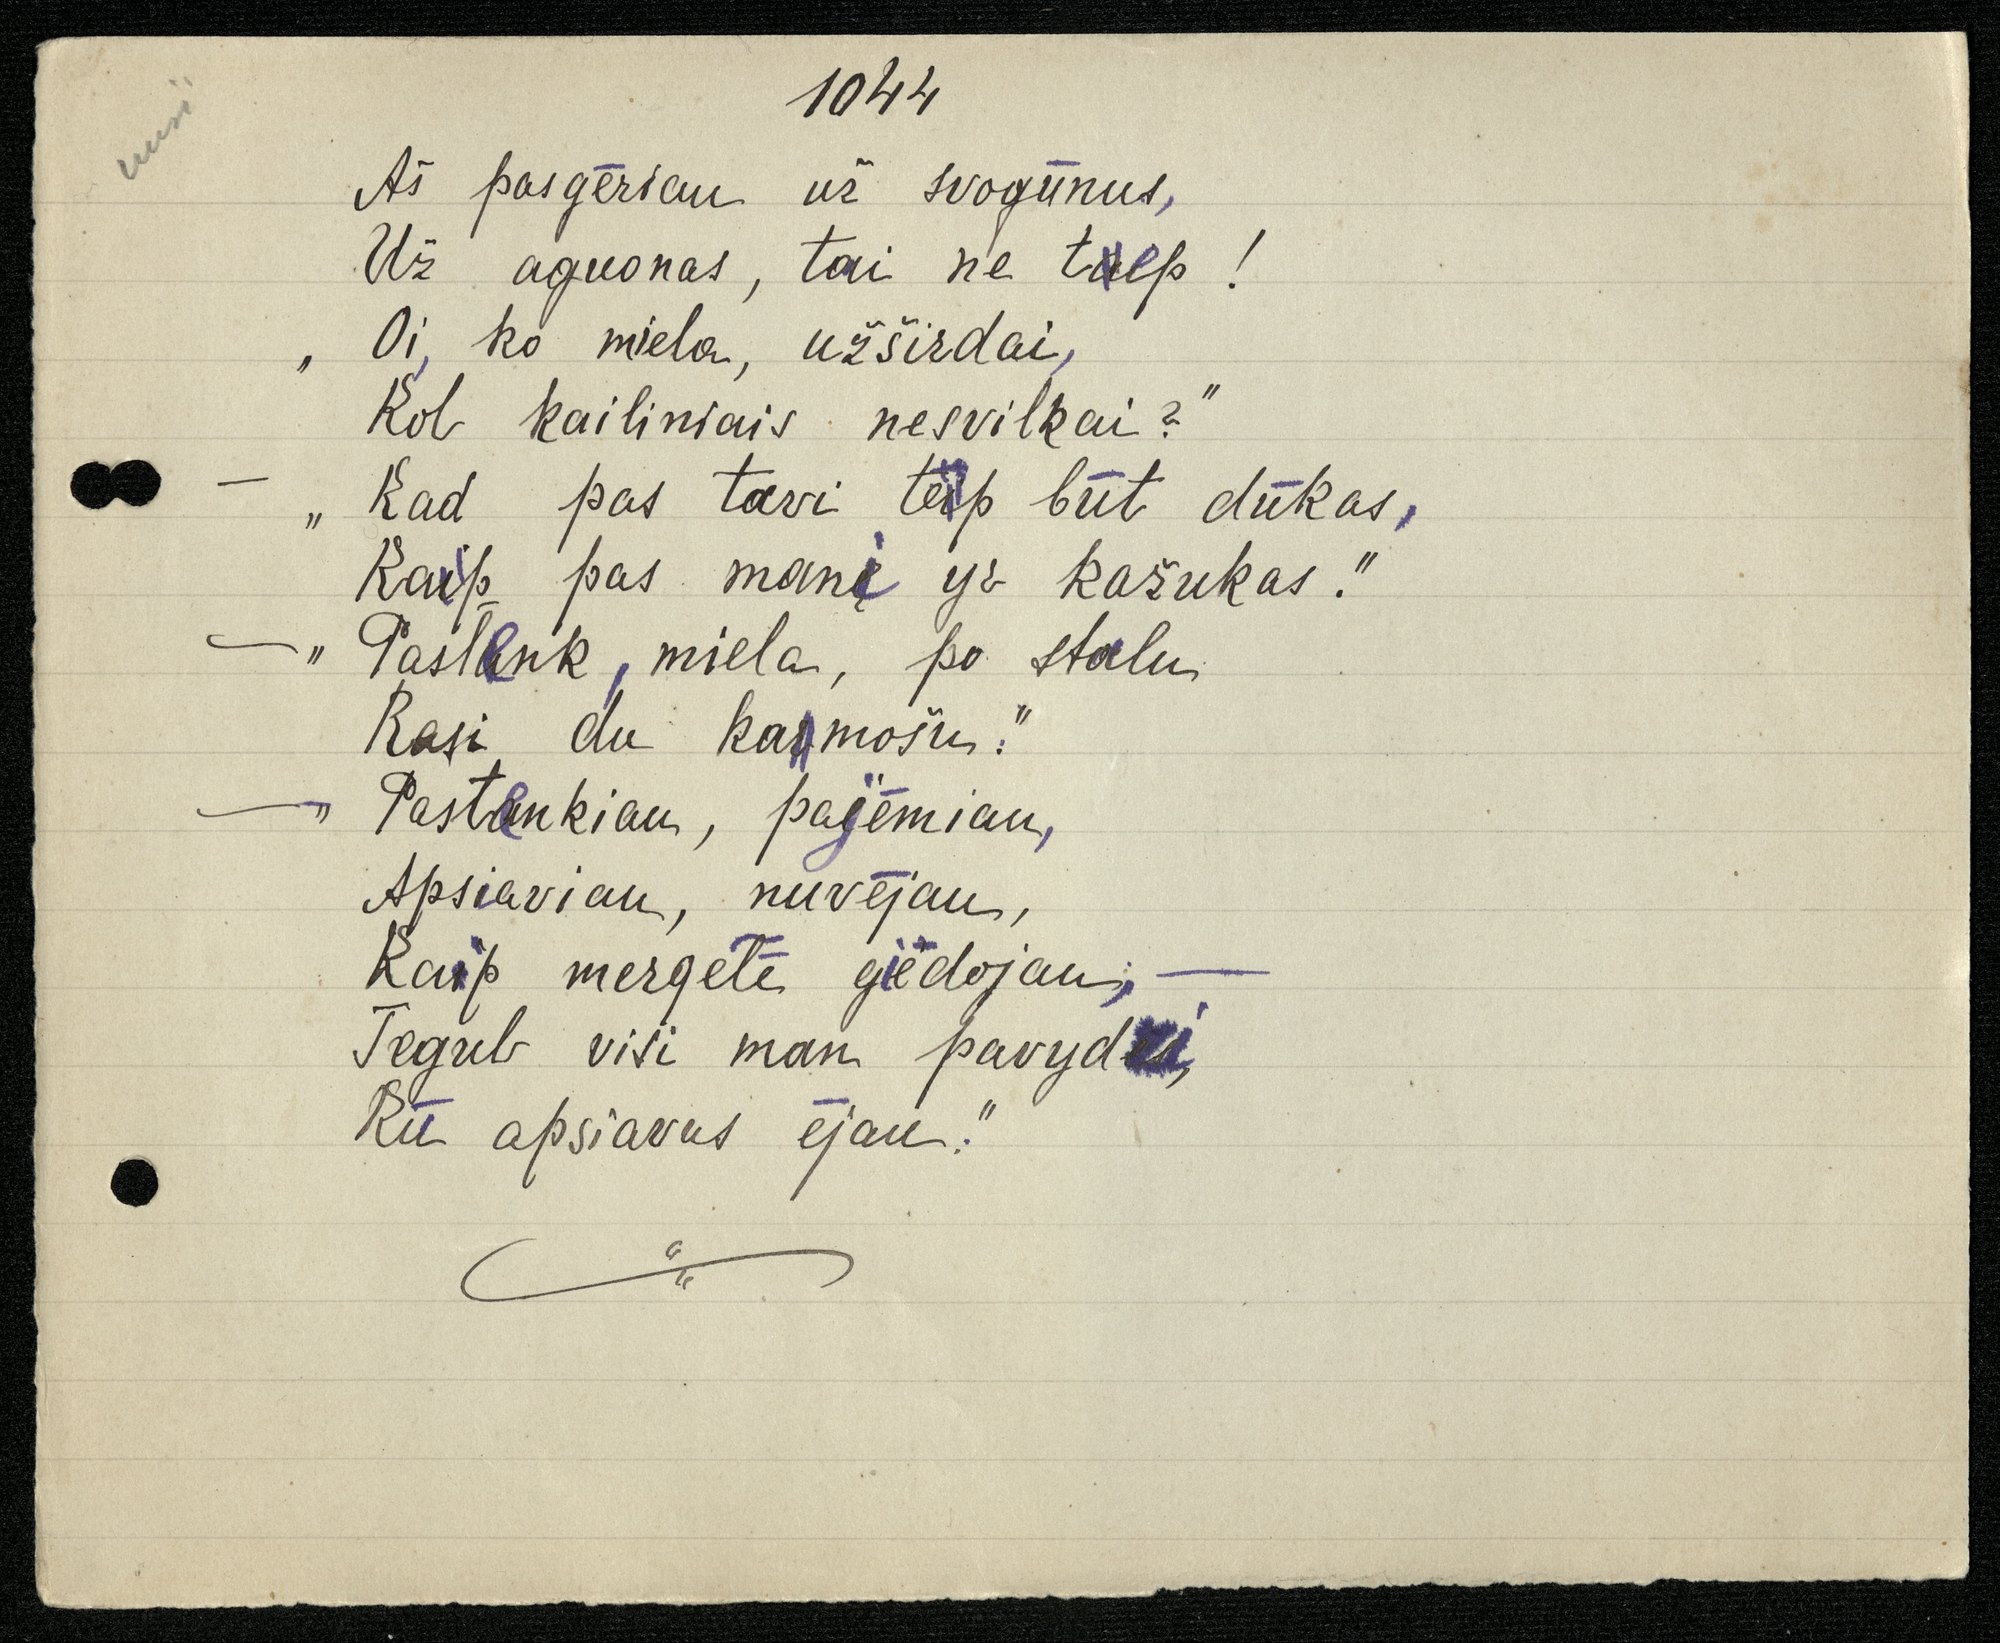 1044
Aš pasgēriau už svogūnus,
Už aguonas, tai ne taep!
„Oi, ko miela, užširdai,
Kol kailiniais nesvilkai?"
— „Kad pas tavi teip būt dūkas,
Kaip pas mani yr kažukas."
— „Paslenk, miela, po stalu
Rasi du karmošu."
— „Paslenkiau, pajēmiau,
Apsiaviau, nuvējau,
Kaip mergelē giēdojau; —
Tegul visi man pavydi,
Kū apsiavus ējau."